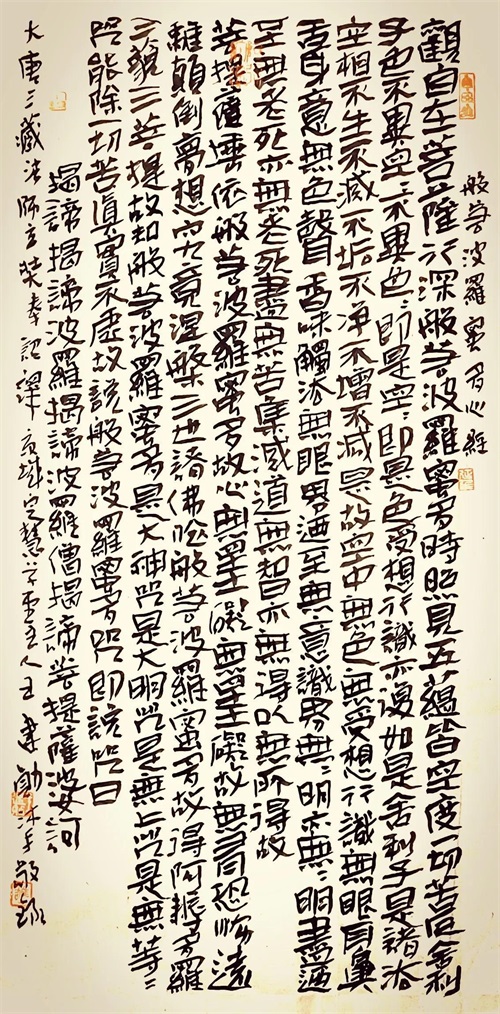 般若波羅蜜多心經
觀自在菩薩行深般若波羅蜜多時照見五蘊皆空度一切苦厄舍利
子色不異空〻不異色〻即是空〻即是色受想行識亦復如是舍利子是諸法
空相不生不滅不垢不淨不增不減是故空中無色無受想行識無眼耳鼻
舌身意無色聲香味觸法無眼界迺至無意識界無〻明亦無〻明盡迺
至無老死亦無老死盡無苦集滅道無智亦無得以無所得故
菩提薩埵依般若波羅蜜多故心無罣礙無罣礙故無有恐怖遠
離顛倒夢想究竟涅槃三世諸佛依般若波羅蜜多故得阿耨多羅
三藐三菩提故知般若波羅蜜多是大神咒是大明咒是無上咒是無等〻
咒能除一切苦真實不虛故說般若波羅蜜多咒即說咒曰
揭諦揭諦波羅揭諦波羅僧揭諦菩提薩婆訶
大唐三藏法師玄奘奉詔譯 定慧 主人王建勛沐手敬錄